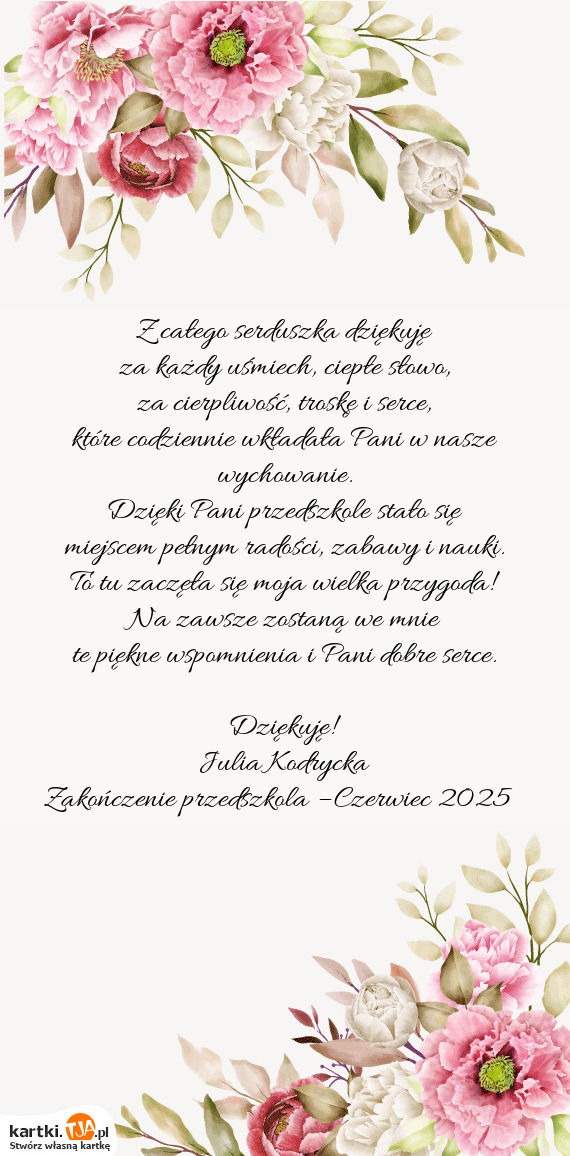 Z całego serduszka dziękuję
za każdy uśmiech, ciepłe słowo,
za cierpliwość, troskę i serce,
które codziennie wkładała Pani w nasze
wychowanie.
Dzięki Pani przedszkole stało się
miejscem pełnym radości, zabawy i nauki.
To tu zaczęła się moja wielka przygoda!
Na zawsze zostaną we mnie
te piękne wspomnienia i Pani dobre serce.
Dziękuję!
Julia Kodrycka
Zakończenie przedszkola – Czerwiec 2025
kartki.TJA.pl
Stwórz własną kartkę